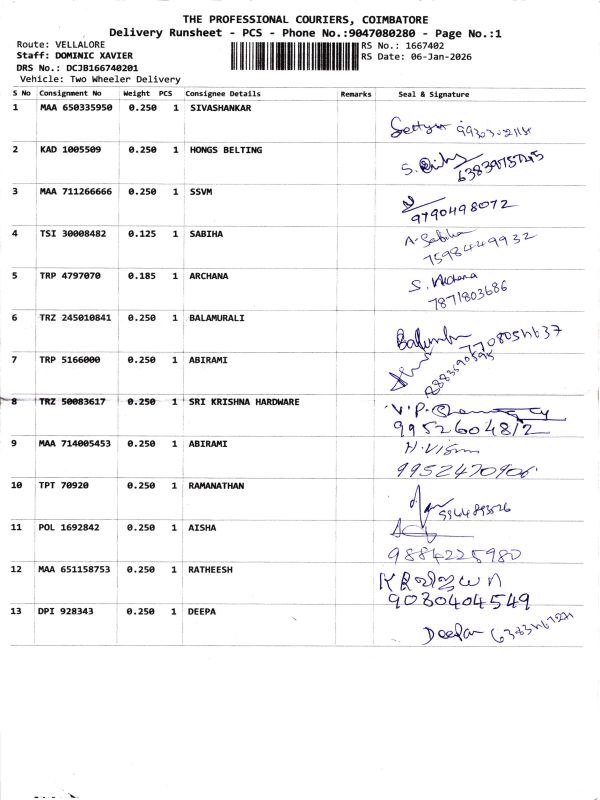 THE PROFESSIONAL COURIERS, COIMBATORE
Delivery Runsheet - PCS - Phone No.:9047080280 - Page No.:1
Route: VELLALORE RS No.: 1667402
Staff: DOMINIC XAVIER RS Date: 06-Jan-2026
DRS No.: DCJB166740201
Vehicle: Two Wheeler Delivery
S No Consignment No Weight PCS Consignee Details Remarks Seal & Signature
1 MAA 650335950 0.250 1 SIVASHANKAR
2 KAD 1005509 0.250 1 HONGS BELTING
3 MAA 711266666 0.250 1 SSVM
9790498072
4 TSI 30008482 0.125 1 SABIHA
A. Sabiha
7598449932
5 TRP 4797070 0.185 1 ARCHANA
S. Archana
7871803686
6 TRZ 245010841 0.250 1 BALAMURALI
7 TRP 5166000 0.250 1 ABIRAMI
8 TRZ 50083617 0.250 1 SRI KRISHNA HARDWARE
V.P.
9952604812
9 MAA 714005453 0.250 1 ABIRAMI
9952470906
10 TPT 70920 0.250 1 RAMANATHAN
11 POL 1692842 0.250 1 AISHA
9884225980
12 MAA 651158753 0.250 1 RATHEESH
9080404549
13 DPI 928343 0.250 1 DEEPA
Deepan